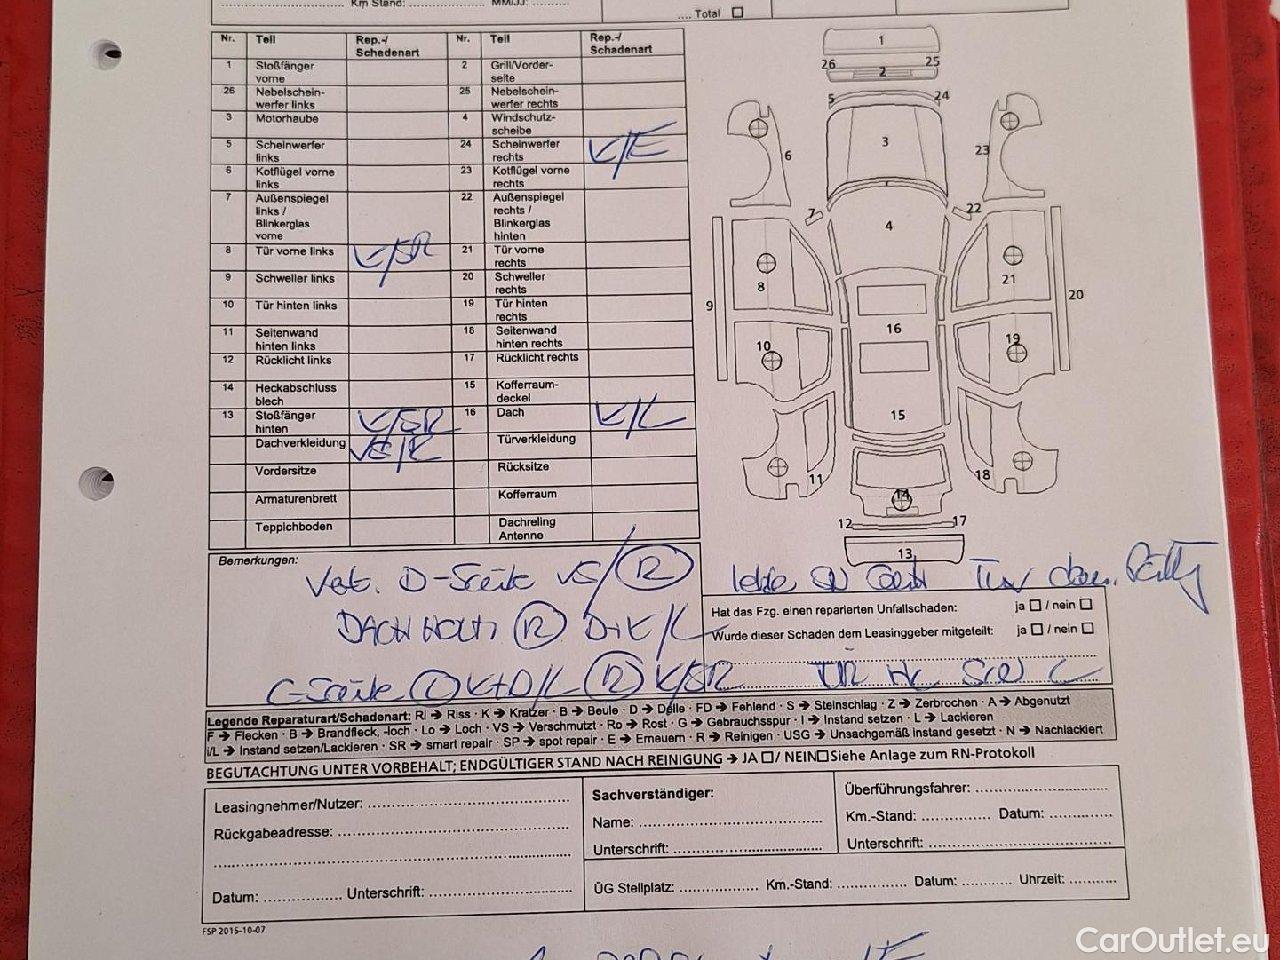 Km Stand:
.... Total ☐
Nr. Teil Rep.-/ Schadenart Nr. Teil Rep.-/ Schadenart
1 Stoßfänger vorne 2 Grill/Vorder-seite
26 Nebelschein-werfer links 25 Nebelschein-werfer rechts
3 Motorhaube 4 Windschutz-scheibe
5 Scheinwerfer links 24 Scheinwerfer rechts K/E
6 Kotflügel vorne links 23 Kotflügel vorne rechts
7 Außenspiegel links / Blinkerglas vorne 22 Außenspiegel rechts / Blinkerglas hinten
8 Tür vorne links K/SR 21 Tür vorne rechts
9 Schweller links 20 Schweller rechts
10 Tür hinten links 19 Tür hinten rechts
11 Seitenwand hinten links 18 Seitenwand hinten rechts
12 Rücklicht links 17 Rücklicht rechts
14 Heckabschluss blech 15 Kofferraum-deckel
13 Stoßfänger hinten K/SR 16 Dach K/L
Dachverkleidung Türverkleidung
Vordersitze Rücksitze
Armaturenbrett Kofferraum
Teppichboden Dachreling Antenne
1
26 25
2
5 24
3
6 23
7 22
4
8 21
9 20
16
10 19
15
11 18
14
12 17
13
Bemerkungen:
D-Säule VS/R
R
C-Säule K/SR
Hat das Fzg. einen reparierten Unfallschaden: ja ☐ / nein ☐
Wurde dieser Schaden dem Leasinggeber mitgeteilt: ja ☐ / nein ☐
Legende Reparaturart/Schadenart: RI → Riss · K → Kratzer · B → Beule · D → Delle · FD → Fehlend · S → Steinschlag · Z → Zerbrochen · A → Abgenutzt
F → Flecken · B → Brandfleck, -loch · Lo → Loch · VS → Verschmutzt · Ro → Rost · G → Gebrauchsspur · I → Instand setzen · L → Lackieren
I/L → Instand setzen/Lackieren · SR → smart repair · SP → spot repair · E → Erneuern · R → Reinigen · USG → Unsachgemäß instand gesetzt · N → Nachlackiert
BEGUTACHTUNG UNTER VORBEHALT; ENDGÜLTIGER STAND NACH REINIGUNG → JA ☐ / NEIN ☐ Siehe Anlage zum RN-Protokoll
Leasingnehmer/Nutzer:
Rückgabeadresse:
Datum: Unterschrift:
Sachverständiger:
Name:
Unterschrift:
Überführungsfahrer:
Km.-Stand: Datum:
Unterschrift:
ÜG Stellplatz: Km.-Stand: Datum: Uhrzeit:
FSP 2015-10-07
CarOutlet.eu